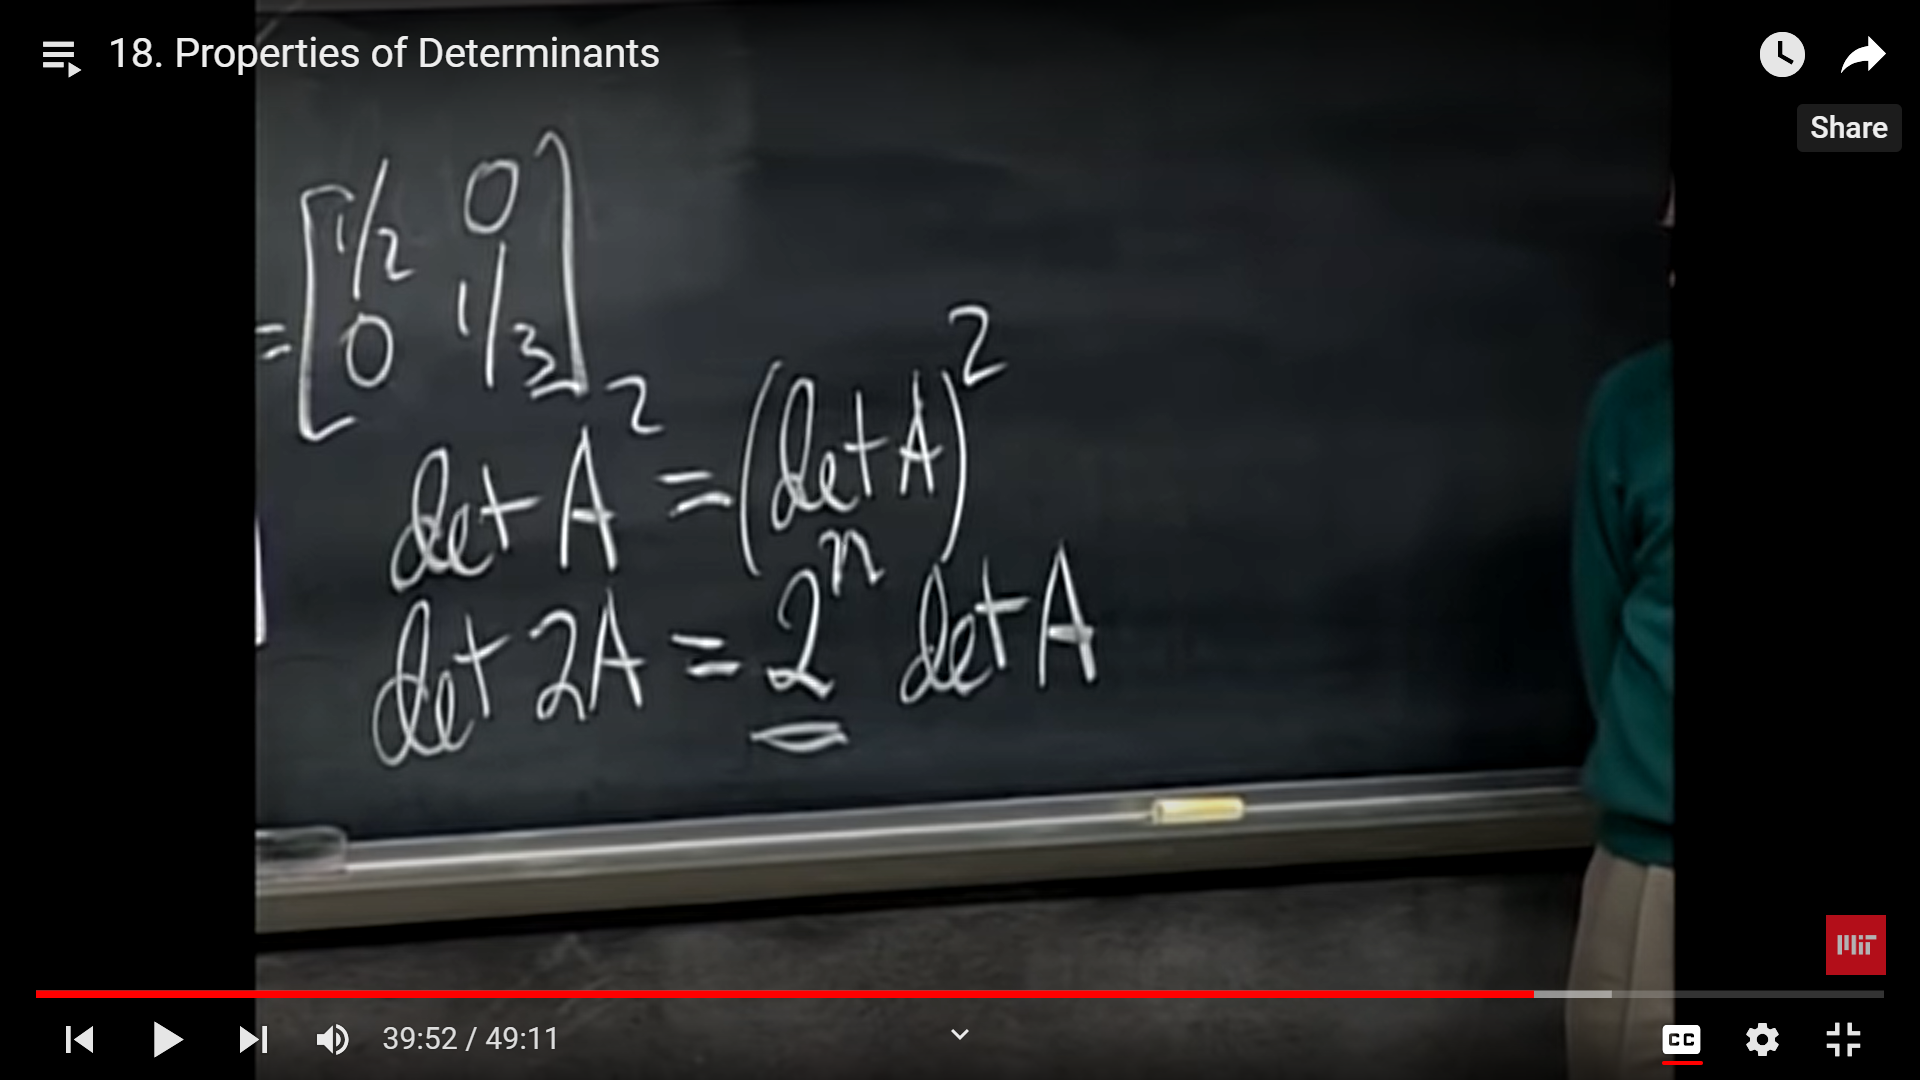 18. Properties of Determinants
Share
= [1/2 0
0 1/3]
det A² = (det A)²
det 2A = 2ⁿ det A
MIT
39:52 / 49:11
CC